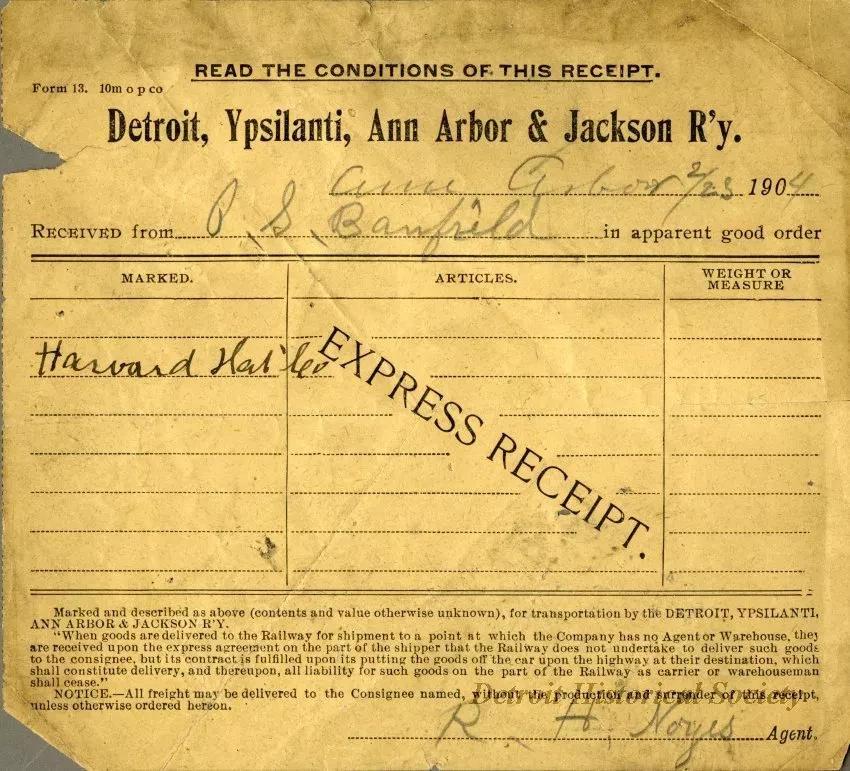 READ THE CONDITIONS OF THIS RECEIPT.
Form 13. 10m o p co
Detroit, Ypsilanti, Ann Arbor & Jackson R'y.
Ann Arbor 2/23 1904
RECEIVED from P. S. Banfield in apparent good order
MARKED. ARTICLES. WEIGHT OR
MEASURE
Harvard Hat Co
EXPRESS RECEIPT.
Marked and described as above (contents and value otherwise unknown), for transportation by the DETROIT, YPSILANTI,
ANN ARBOR & JACKSON R'Y.
"When goods are delivered to the Railway for shipment to a point at which the Company has no Agent or Warehouse, they
are received upon the express agreement on the part of the shipper that the Railway does not undertake to deliver such goods
to the consignee, but its contract is fulfilled upon its putting the goods off the car upon the highway at their destination, which
shall constitute delivery, and thereupon, all liability for such goods on the part of the Railway as carrier or warehouseman
shall cease."
NOTICE.—All freight may be delivered to the Consignee named, without the production and surrender of this receipt,
unless otherwise ordered hereon.
Detroit Historical Society
R. H. Noyes Agent.